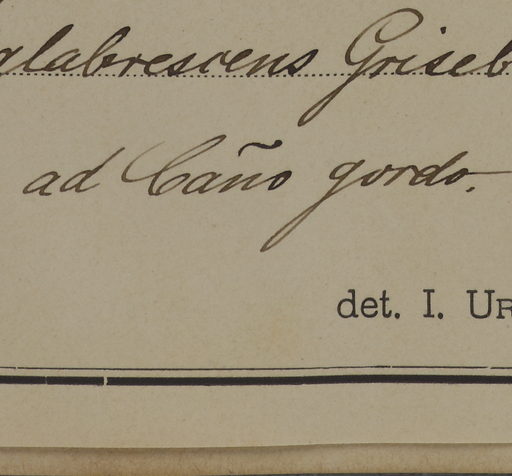 glabrescens Griseb
ad Caño gordo.
det. I. UR